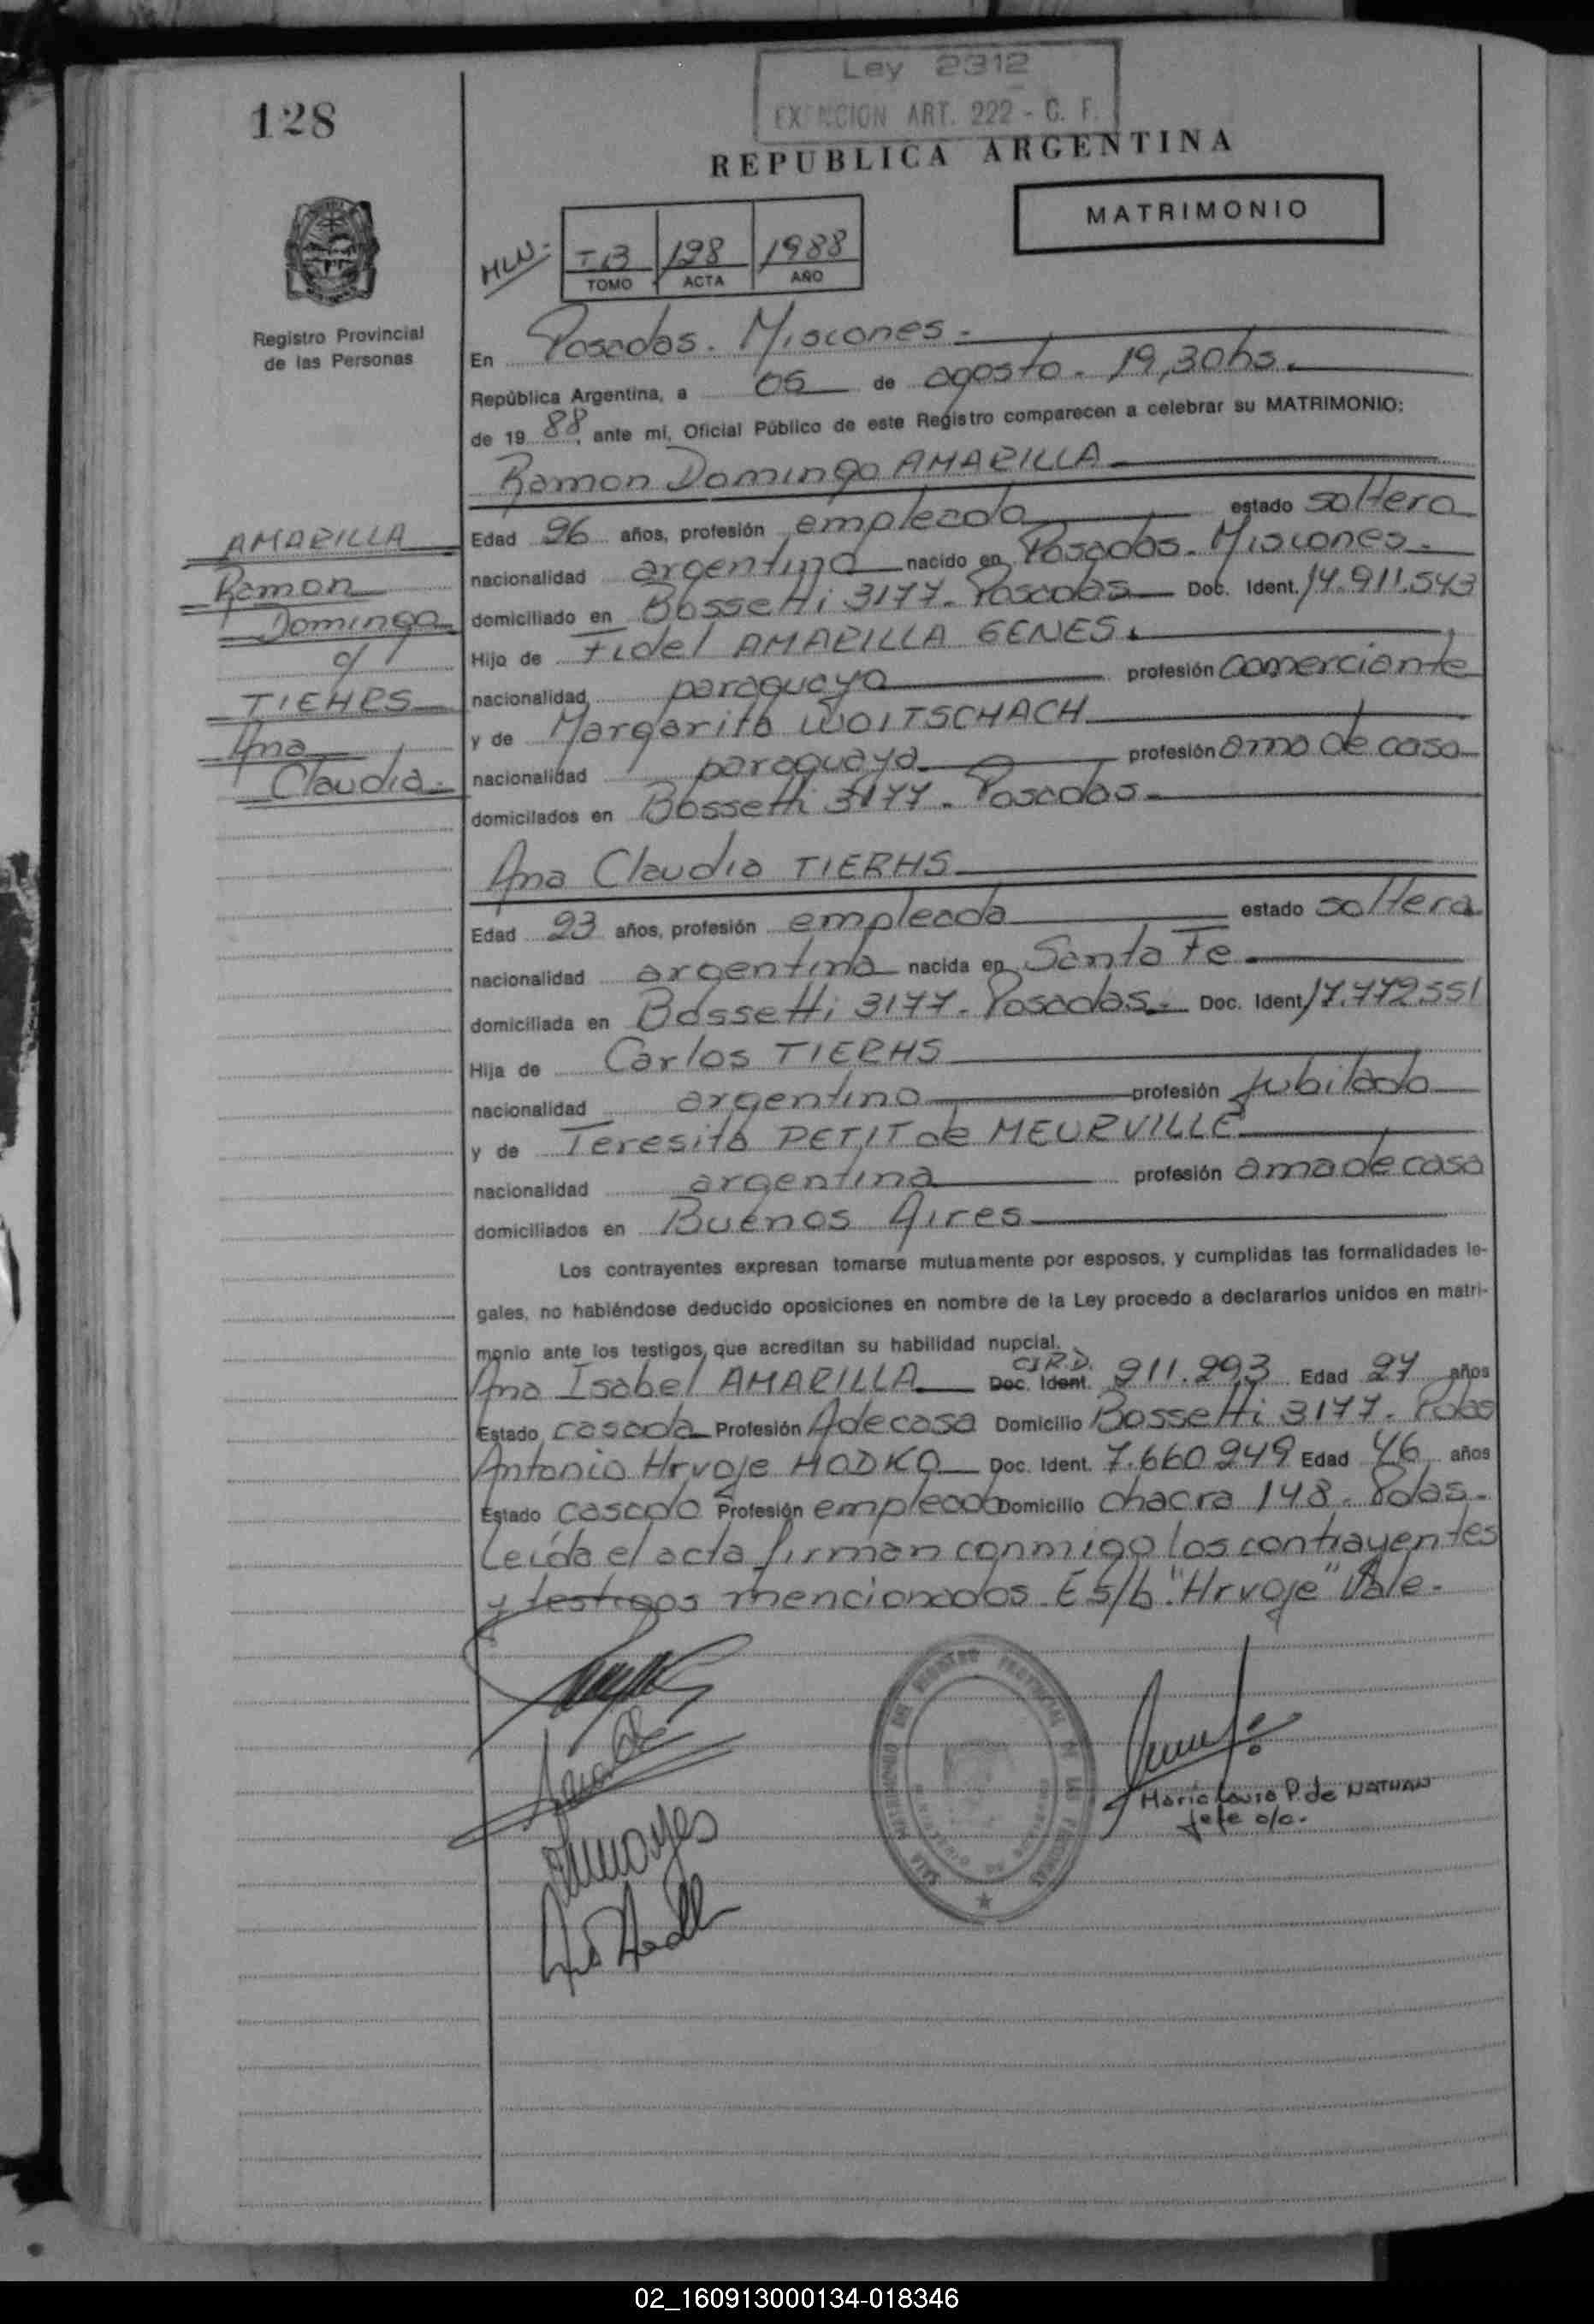 128
Ley 2312
EXENCION ART. 222 - C. F.
REPUBLICA ARGENTINA
MATRIMONIO
T.B 128 1988
TOMO ACTA AÑO
Registro Provincial
de las Personas
En Posadas. Misiones.
República Argentina, a 05 de agosto. 19,30hs.
de 1988, ante mí, Oficial Público de este Registro comparecen a celebrar su MATRIMONIO:
Ramon Domingo AMARILLA
AMARILLA
Ramon
Domingo
c/
TIEHRS
Ana
Claudia.
Edad 26 años, profesión empleado estado soltero
nacionalidad argentino nacido en Posadas. Misiones.
domiciliado en Bossetti 3177. Posadas Doc. Ident. 14.911.543
Hijo de Fidel AMARILLA GENES.
nacionalidad paraguayo profesión comerciante
y de Margarita WOITSCHACH
nacionalidad paraguaya profesión ama de casa
domicilados en Bossetti 3177. Posadas.
Ana Claudia TIERHS
Edad 23 años, profesión empleada estado soltera
nacionalidad argentina nacida en Santa Fe.
domiciliada en Bossetti 3177. Posadas. Doc. Ident. 17.772.551
Hija de Carlos TIERHS
nacionalidad argentino profesión jubilado
y de Teresita PETIT de MEURVILLE
nacionalidad argentina profesión ama de casa
domiciliados en Buenos Aires
Los contrayentes expresan tomarse mutuamente por esposos, y cumplidas las formalidades le-
gales, no habiéndose deducido oposiciones en nombre de la Ley procedo a declararlos unidos en matri-
monio ante los testigos, que acreditan su habilidad nupcial.
Ana Isabel AMARILLA Doc. Ident. 211.293 Edad 27 años
Estado casada Profesión A de casa Domicilio Bossetti 3177. Pdas
Antonio Hrvoje HODKO Doc. Ident. 7.660.249 Edad 46 años
Estado casado Profesión empleado Domicilio chacra 148. Pdas.
Leída el acta firman conmigo los contrayentes
y testigos mencionados. E s/b. "Hrvoje" Vale.
Maria Laura P. de NATHAN
Jefe a/c.
02_160913000134-018346